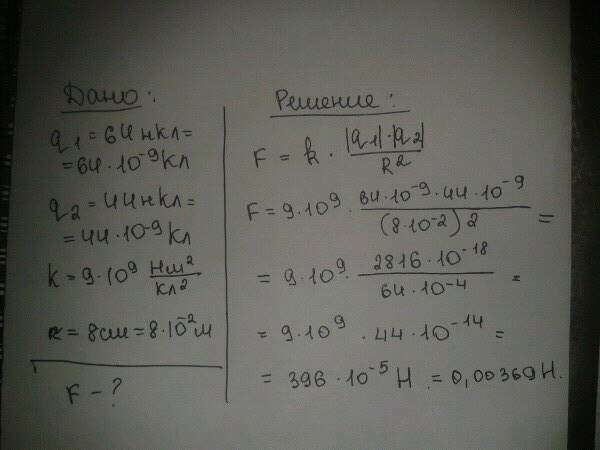 Дано:
q₁ = 64 нкл =
= 64 · 10⁻⁹ Кл
q₂ = 44 нкл =
= 44 · 10⁻⁹ Кл
k = 9 · 10⁹ Нм²/кл²
r = 8 см = 8 · 10⁻² м
F - ?
Решение:
F = k · |q₁| · |q₂| / R²
F = 9 · 10⁹ · 64 · 10⁻⁹ · 44 · 10⁻⁹ / (8 · 10⁻²)² =
= 9 · 10⁹ · 2816 · 10⁻¹⁸ / 64 · 10⁻⁴ =
= 9 · 10⁹ · 44 · 10⁻¹⁴ =
= 396 · 10⁻⁵ Н = 0,00369 Н.